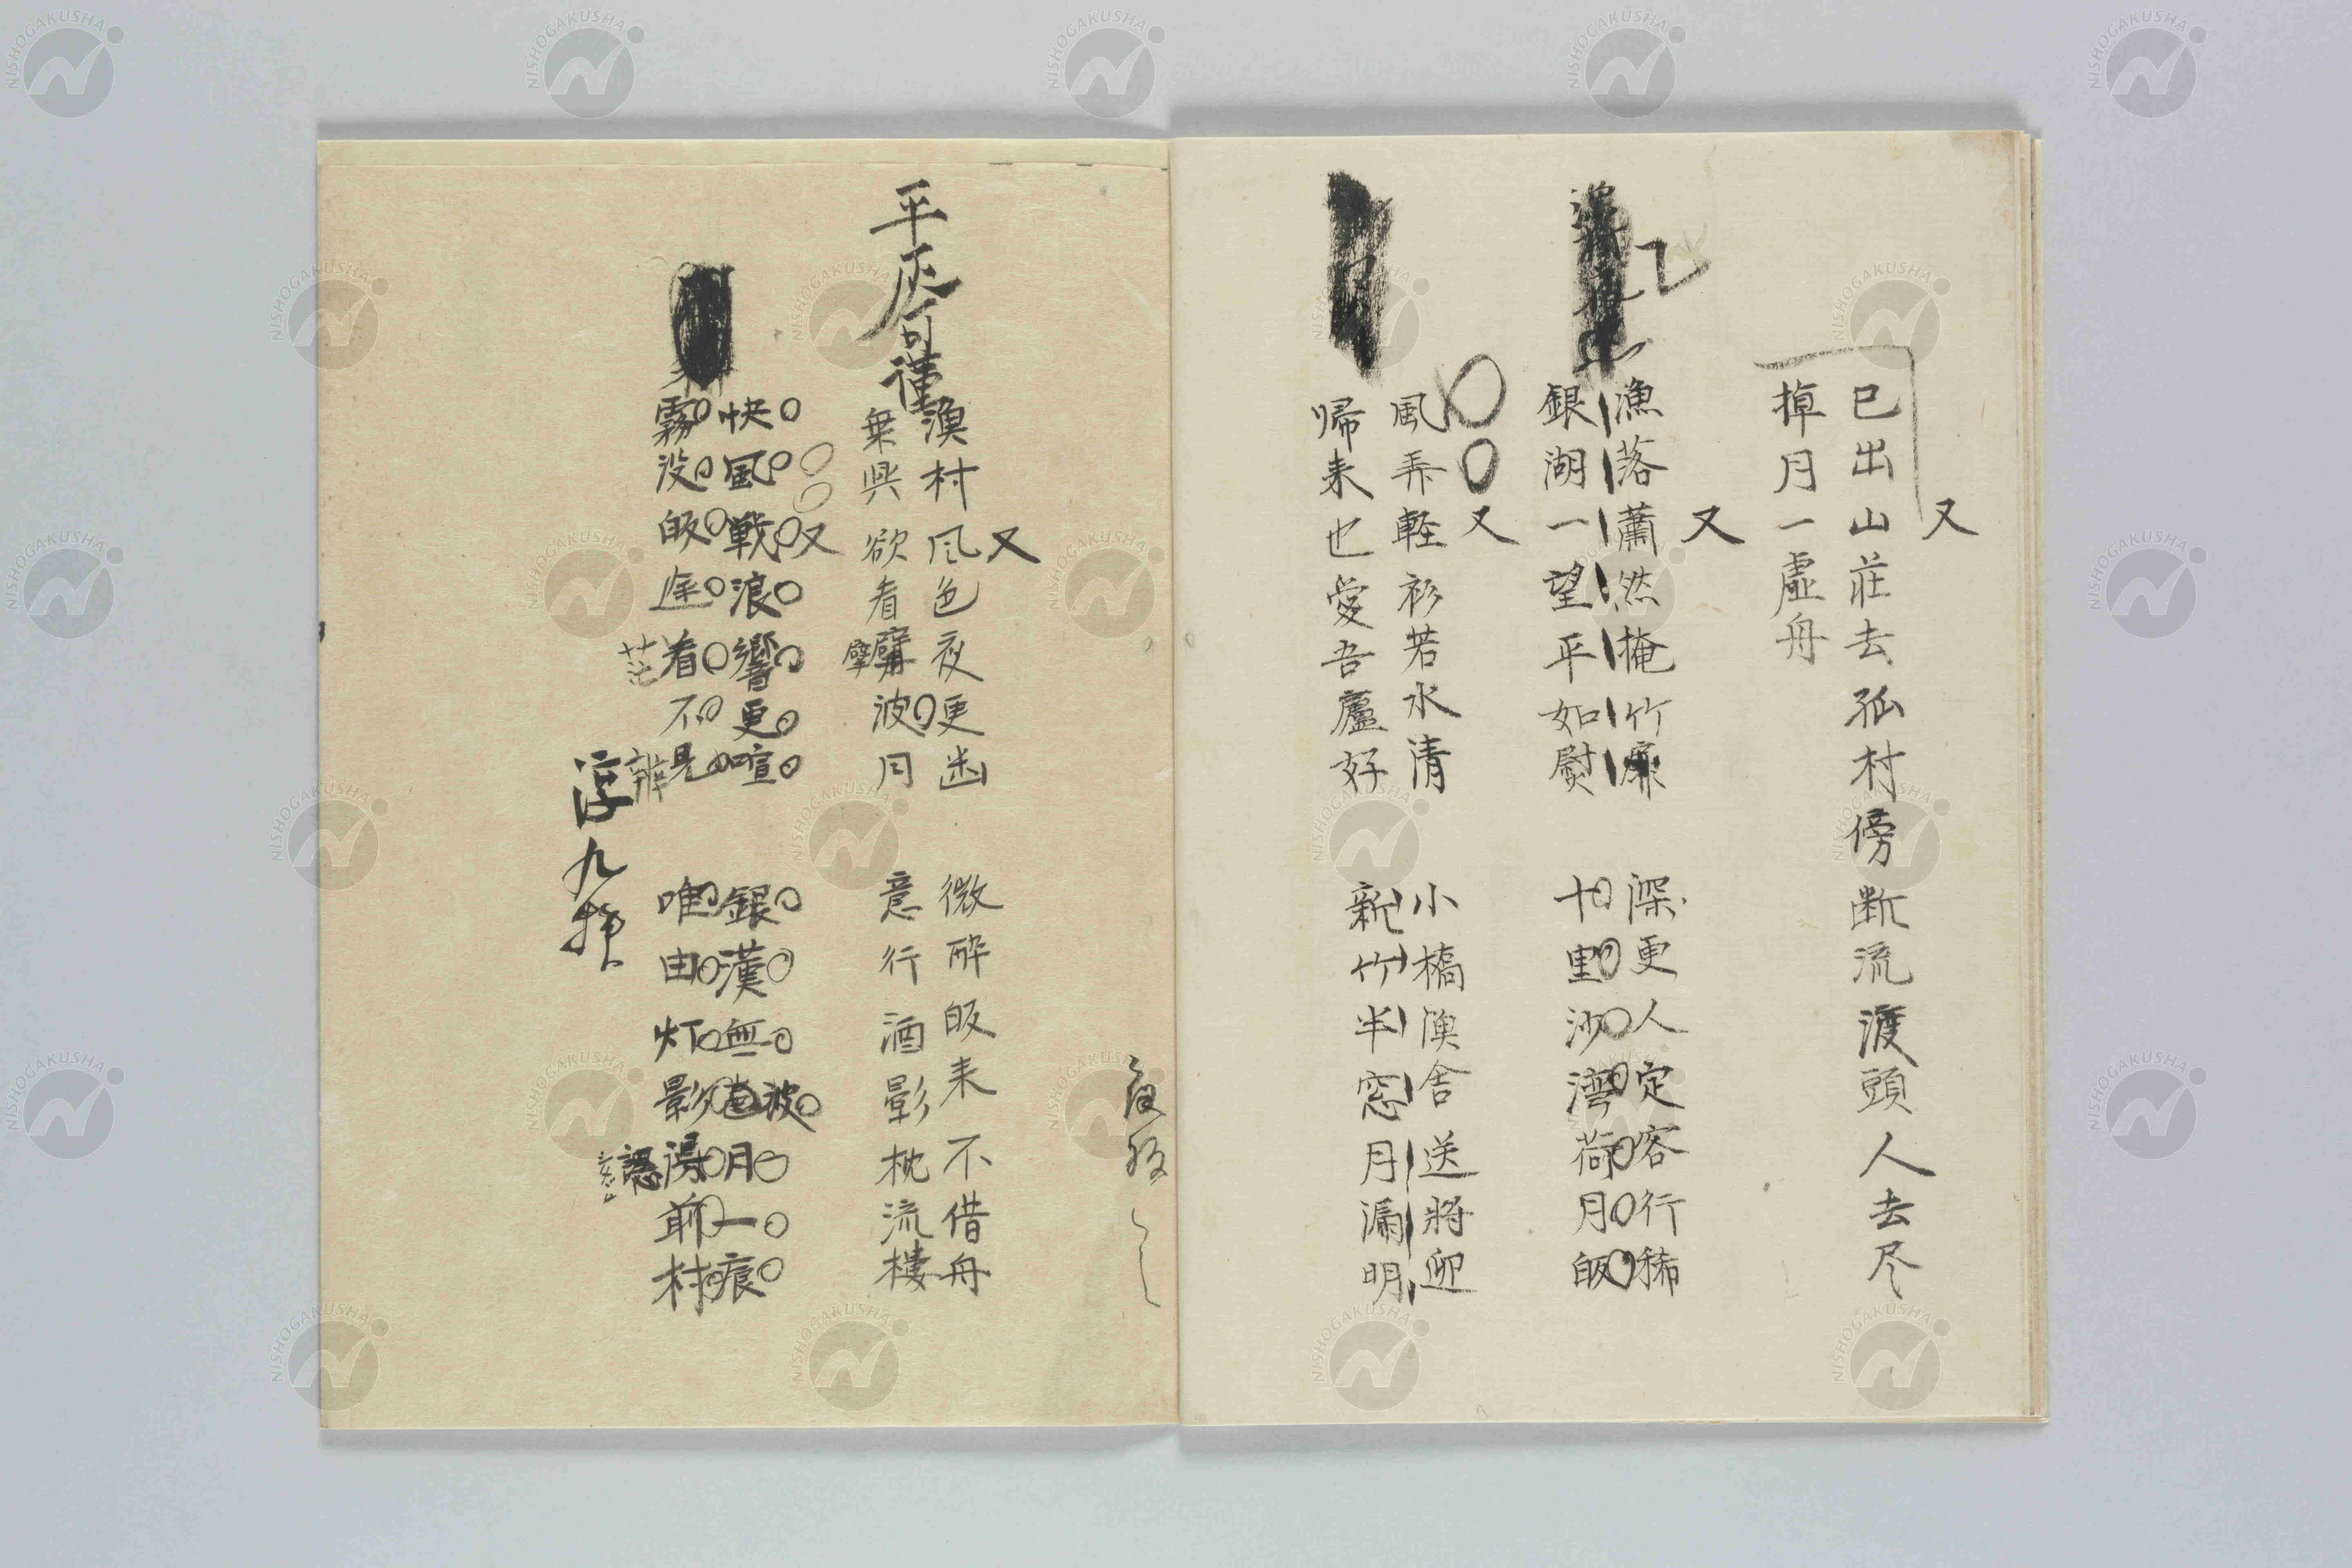 又
已出山荘去孤村傍断流渡頭人去尽
棹月一虚舟
又
漁落蕭然掩竹扉　深更人定客行稀
銀湖一望平如熨　十里沙湾荷月皈
又
風弄軽衫若水清　小橋漁舎送將迎
帰来也愛吾廬好　新竹半窓月漏明
又
平仄可謹
漁村风色夜更幽　微酔皈来不借舟
乗興欲看劈波月　意行酒影枕流楼
又
快風戦浪響更喧　銀漢無波月一痕
霧没皈途看不見　唯由灯影得前村
茫
辨
認
浮九拝
NISHOGAKUSHA